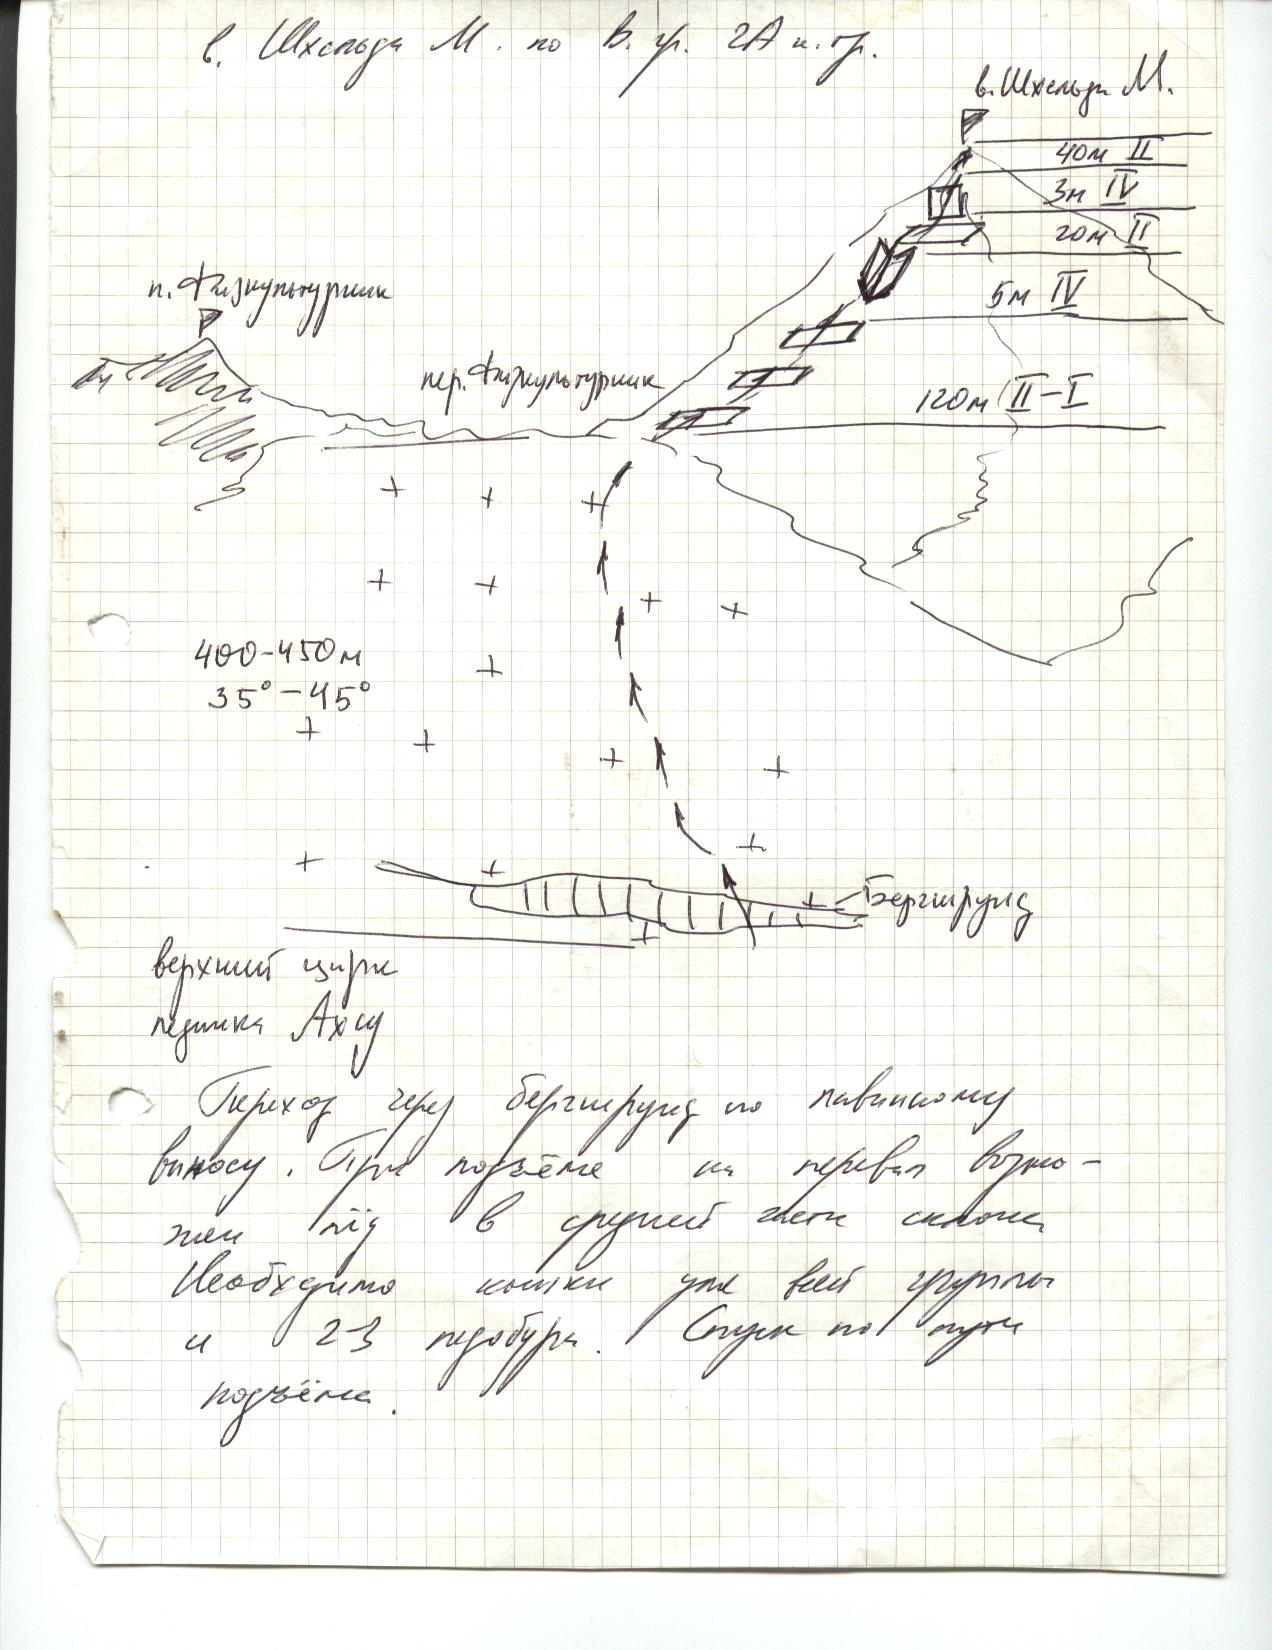 в. Шхельда М. по В. гр. 2А к.тр.
в. Шхельда М.
40м II
3м IV
20м II
п. Физкультурник
5м IV
пер. Физкультурник
120м II-I
400-450м
35°-45°
Бергшрунд
верхний цирк
ледника Ахсу
Переход через бергшрунд по лавинному
выносу. При подъёме на перевал возмо-
жен лёд в средней части склона
Необходимо кошки для всей группы
и 2-3 ледобура. Спуск по пути
подъёма.